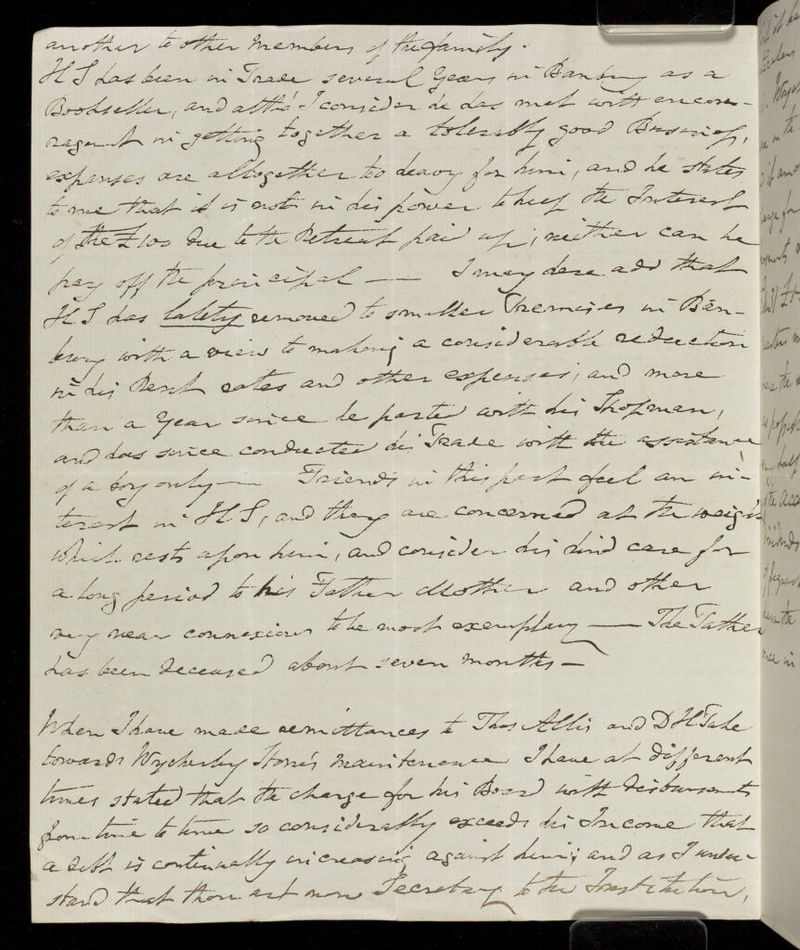 another to other Members of the family.
H S has been in Trade several Years in Banbury as a
Bookseller, and altho' I consider he has met with encou-
ragem't in getting together a tolerably good Business,
expenses are altogether too heavy for him, and he states
to me that it is not in his power to keep the Interest
of the £100 due to the Retreat paid up; neither can he
pay off the principal —— I may here add that
H S has lately removed to smaller Premises in Ban-
bury with a view to making a considerable reduction
in his Rent rates and other expenses; and more
than a Year since he parted with his Shopman,
and has since conducted his Trade with the assistance
of a boy only — Friends in this part feel an in-
terest in H S, and they are concerned at the weight
which rests upon him, and consider his kind care for
a long period to his Father Mother and other
very near connexions to be most exemplary — The Father
has been deceased about seven months —
When I have made remittances to Thos Allis and D H Tuke
towards Wycherley Stone's maintenance I have at different
times stated that the charge for his Board with disbursements
from time to time so considerably exceeds his Income that
a debt is continually increasing against him; and as I under-
stand that thou art now Secretary to the Institution,